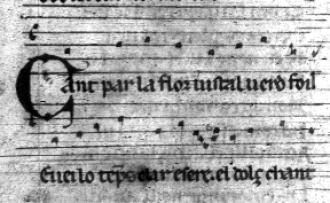 Cant par la flor iustal uerd foil
E uei lo tẽps clar e sere. el dolç chant